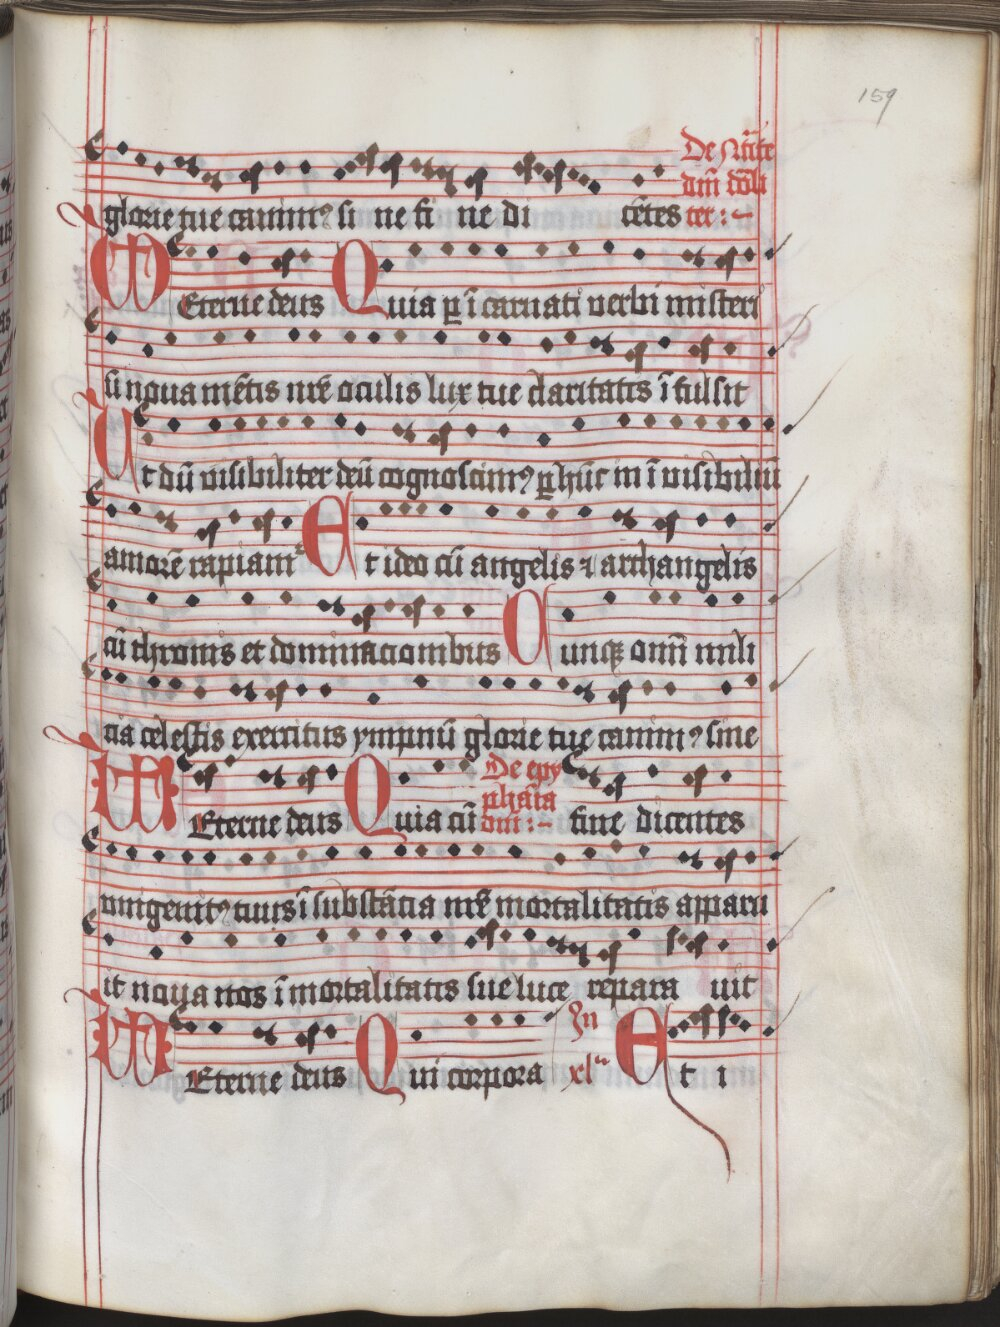 159
glorie tue canimꝰ si ne fi ne di cētes
De Natīte
dn̄i
ter :~
Eterne deus Quia ꝑ īcarnati verbi misteri
ū noua mētis nrē oculis lux tue claritatis īfulsit
Ut dū visibiliter deū cognoscimꝰ ꝑ hūc in īvisibiliū
amorē rapiamᷣ Et ideo cū angelis ⁊ archangelis
cū thronis et dominacionibus Cunqꝫ om̄i mili
cia celestis exercitus ympnū glorie tue canimꝰ sine
De epy
phāia
dn̄i :~
Eterne deus Quia cū fine dicentes
vnigenitꝰ tuus ī substācia nrē mortalitatis apparu
it noua nos īmortalitatis sue luce repara uit
Eterne deus Qui corpora In
xlᵃ Et i